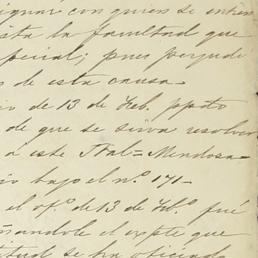 signar con quien se entien
sita la facultad que
pecial; pues perjudi
s de esta causa.
io de 13 de Feb. ppdo
de que se sirva resolver
á este Tbal = Mendosa
ño bajo el nº 171-
el ofº de 13 de Febº. fué
ñandole el expte que
titud se ha oficiado